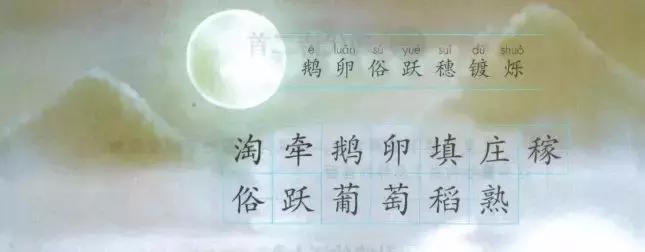 é luǎn sú yuè suì dù shuò
鹅 卵 俗 跃 穗 镀 烁
淘 牵 鹅 卵 填 庄 稼
俗 跃 葡 萄 稻 熟